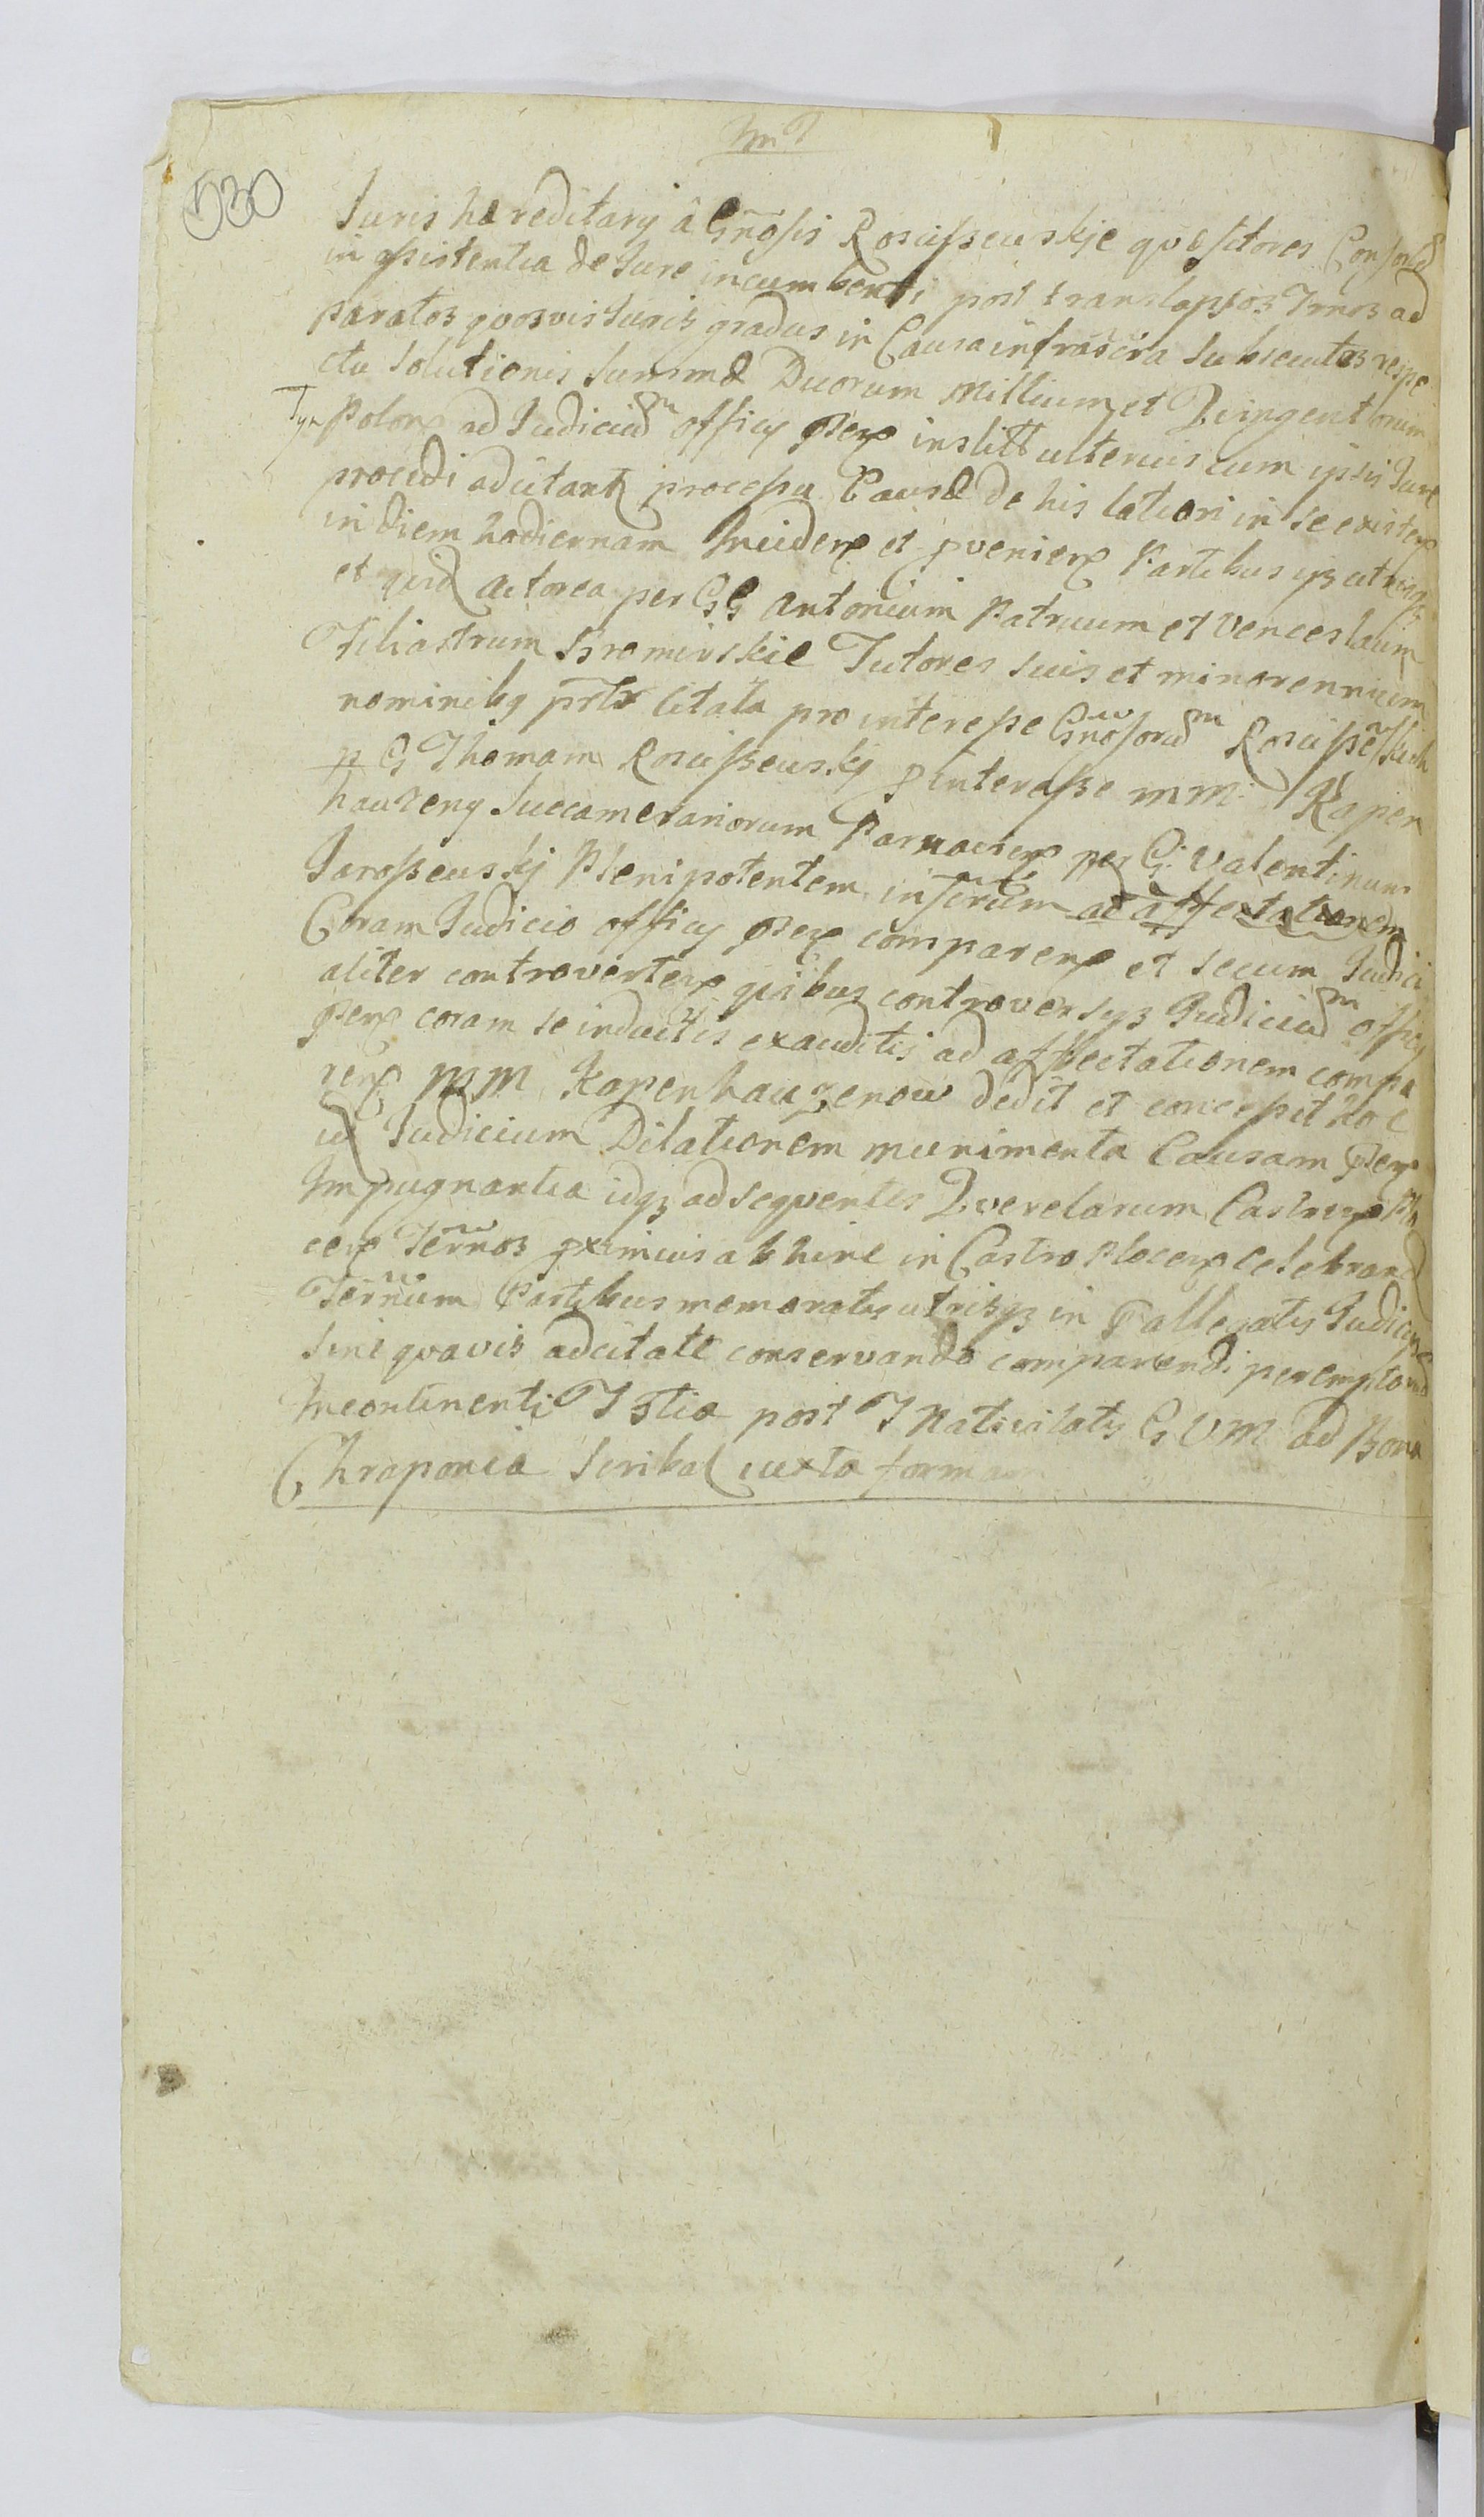 530
Juris hæreditarij â Gnosis Rosciszewskie qvæsitores Consortes
in assistentia de Jure incumbenti post translapsos Trnos ad
paratos qvosvis Juris gradus in Causa infrascra subsecutos respe
ctu solutionis summæ Duorum Millium et Qvingentorum
Tyn Polon ad Judicium officij pten instt ulterius cum ipsis Jure
procedi adcitant processu Causæ de his latiori in se existen
in diem hodiernam Inciden et pvenien Partibus ijs utrisqz
et qvid actorea per GG Antonium Patruum et Venceslaum
Filiastrum Kromirskie Tutores suis et minorennium
nominibq citata pro interesse Gnosorum Rosciszewskich
p G Thomam Rosciszewskj p interesse MM Kapen
hauzeny Succamerariorum Parnavien per G. Valentinum
Jaroszewskj Plenipotentem infrascrum ad affectationem
Coram Judicio officij pten comparen et secum Judici
aliter controverten qvibus controversijs Judicium officij
pten coram se inductis exauditis ad affectationem compa
ren MM Kapenhauzenow dedit et concessit hoc
id Judicium Dilationem munimenta Causam pten
Impugnantia idqz ad seqventes Qverelarum Castren Plo
cen Ternos proximius abhinc in Castro Plocen celebrand
Ternum Partibus memoratis utrisqz in pallegatis Judicijs
sine qvavis adcitate conservando comparendi peremptorium
Incontinenti F 3tia post F Nativitatis B V M ad Bona
Chraponia Scribal iuxta formam